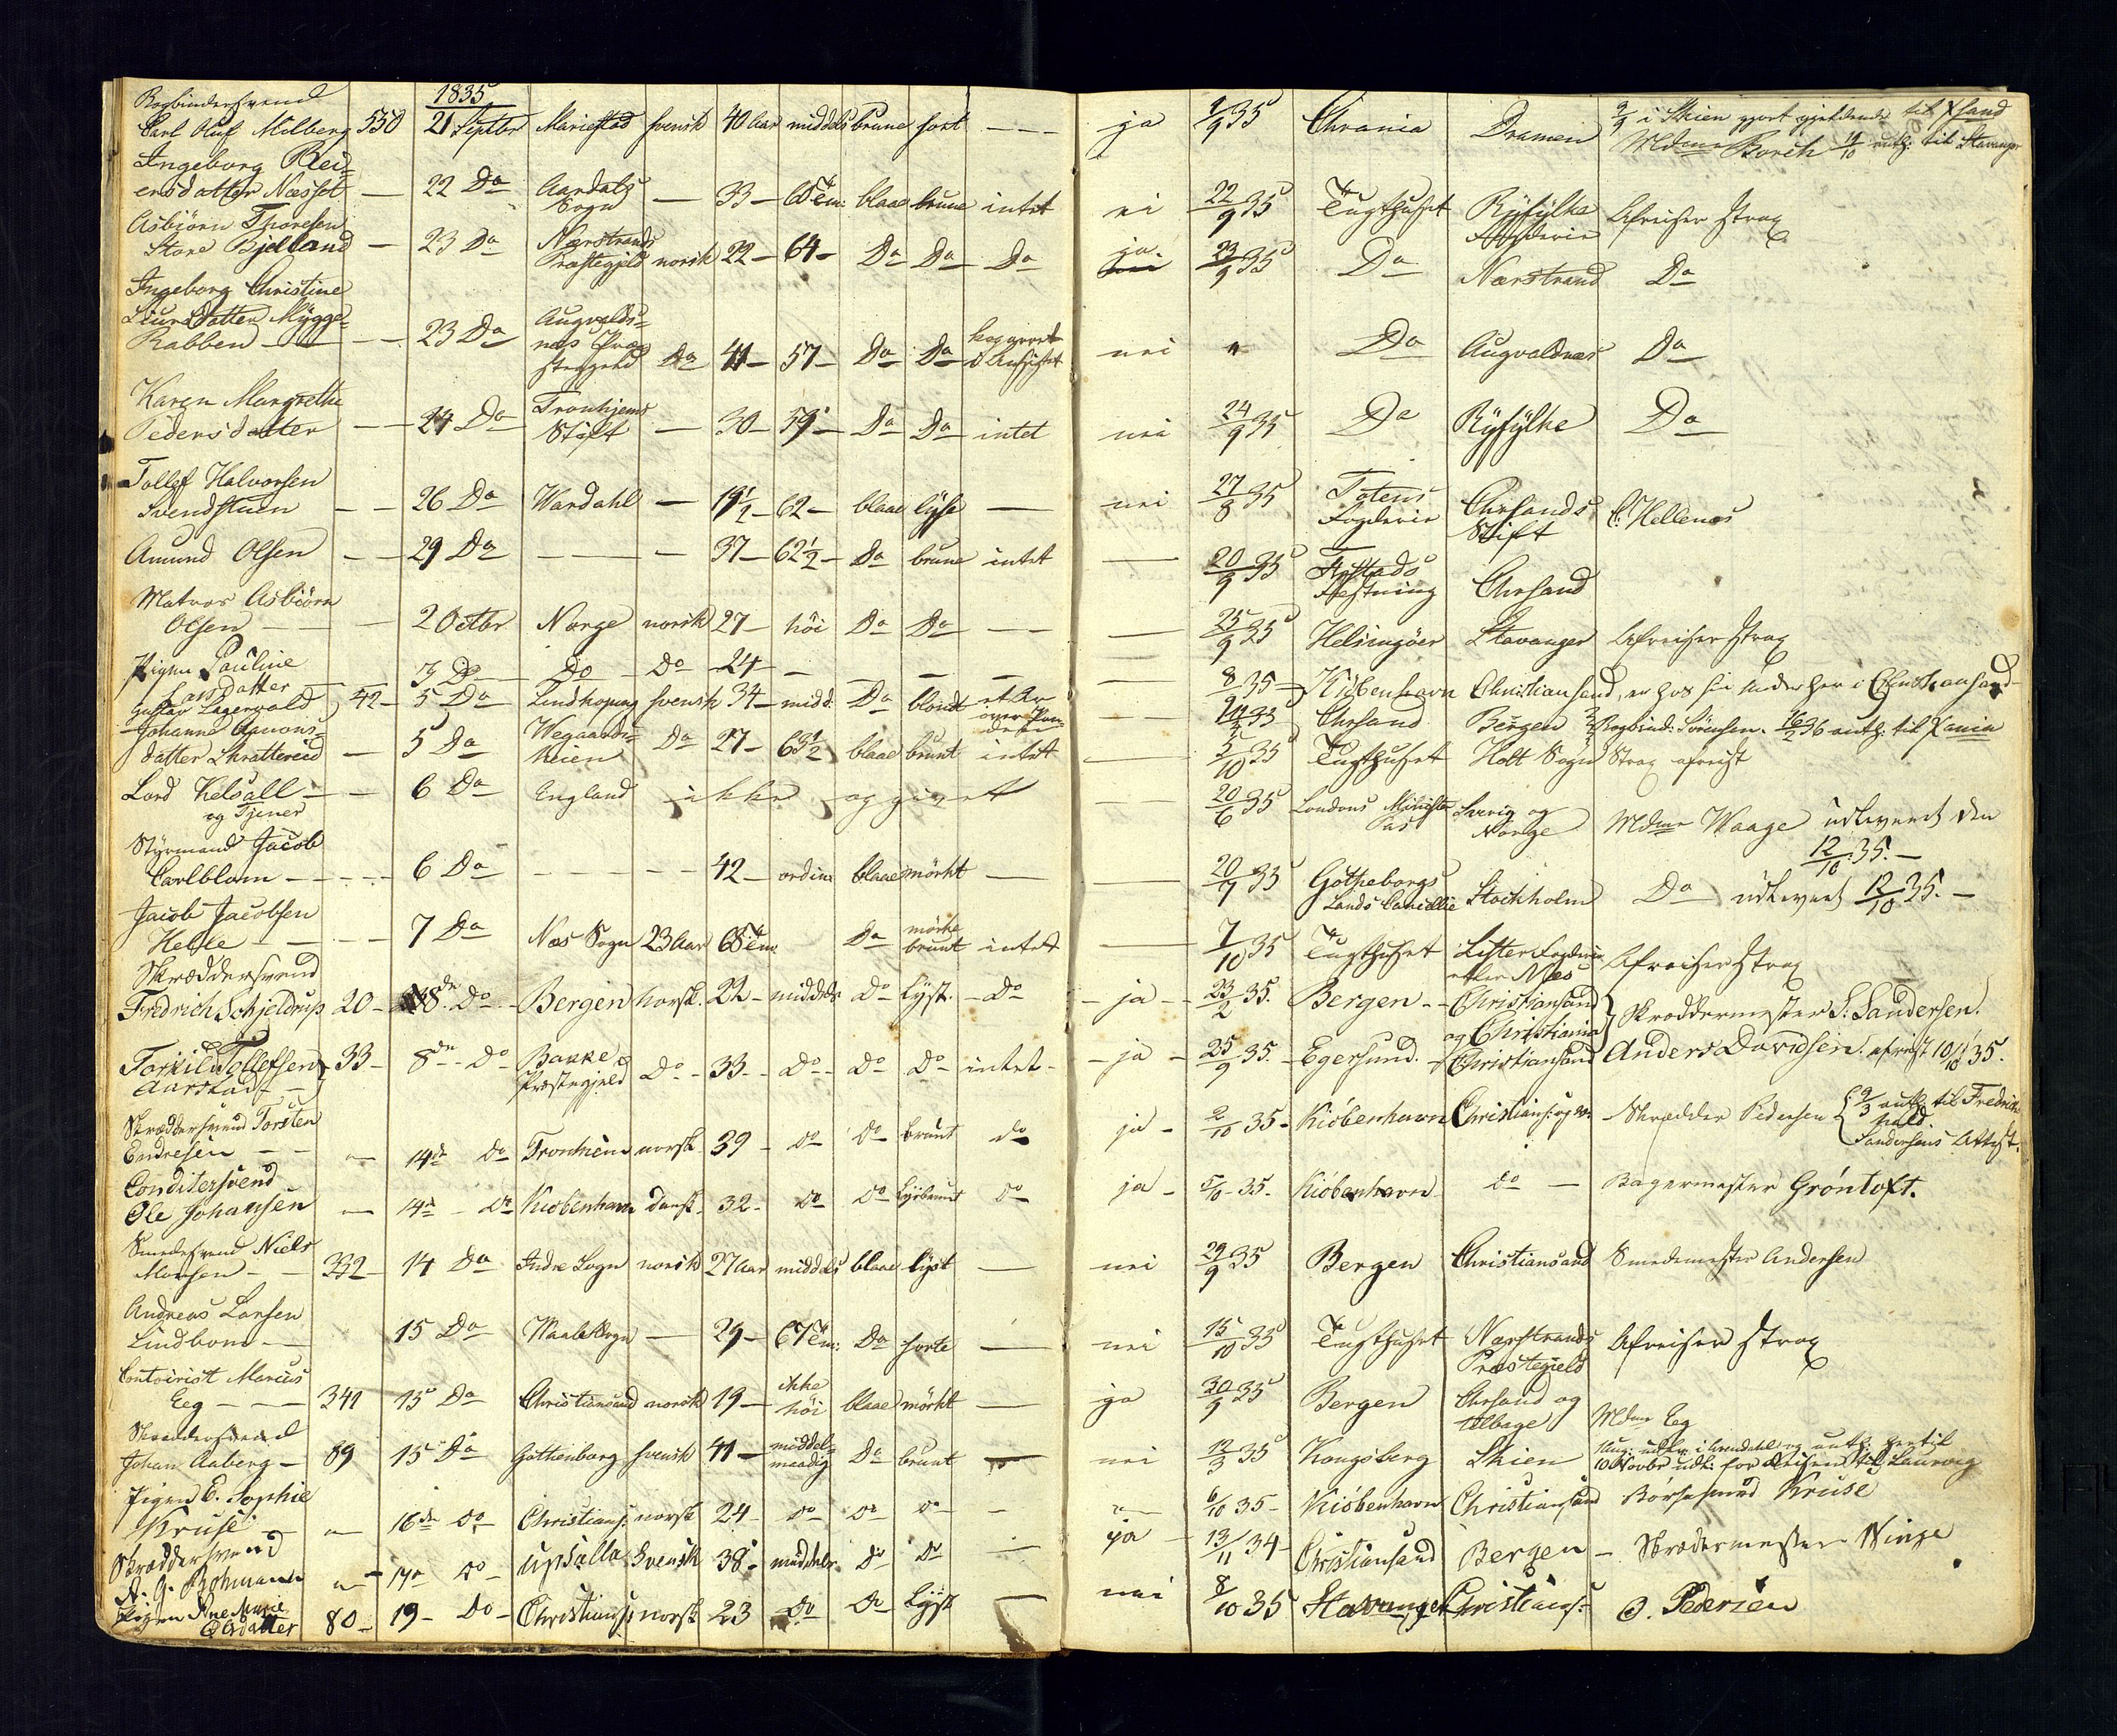 1835
Bogbindersvend
Carl Oluf Milberg 550 21 Septbr Mariestad svensk 40 Aar middels brune sort — — — ja 1/9 35 Chrania Dramen 3/9 i Skien giort gjeldende til Xsand
Mdme Borch 14/10 auth: til Stavanger
Ingeborg Rei=
ersdatter Næsset — 22 Do Aardals Sogn — 33 — 60 Tm: blaae brune intet nei 22/9 35 Tugthuset Ryfylke Fogderie Afreiser strax
Asbiørn Thoresen
Store Bjelland — 23 Do Nærstrands Præstegjeld norsk 22 — 64 — Do Do Do ja nei 23/9 35 Do Nærstrand Do
Ingeborg Christine
Siursdatter Mygge=
Rabben — — — 23 Do Augvalds= næs Præ= stegjeld Do 41 — 57 — Do Do kopparret i Ansigtet nei " Do Augvaldnæs Do
Karen Margrethe
Pedersdatter — — 24 Do Tronhjems Stift — 30 — 59 — Do Do intet nei 24/9 35 Do Ryfylke Do
Tollef Halvorsen
Svendstuen — — 26 Do Wardahl — 19 1/2 — 62 — blaae lyse — nei 27/8 35 Totens Fogderie Chrsands Stift C. Hellenes
Amund Olsen — — 29 Do — — — 37 — 62 1/2 — Do brune intet — 20/9 35 Fæstning Chrsand
Matros Asbiørn
Olsen — — 2 Octbr Norge norsk 27 — høi Do Do — — — 25/9 35 Helsingøer Stavanger Afreiser strax
Pigen Pauline
Larsdatter — 3 Do Do Do 24 — — — — — — 8 35 — Kiøbenhavn Christiansand, er hos sin Moder her i Christiansand
Gustav Lagervald 42 — 5 Do Lindkoping svensk 34 — midd: Do blondt et Ar over Panden — — 35 Chrsand Bergen Bogbind: Sørensen. 16/2 36 auth: til Xania
Johanne Amons=
datter Skrattereid — 5 Do Wegaards= heien Do 27 — 63 1/2 blaae brunt intet — 5/10 35 Tugthuset Holt Sogn Strax afreist
Lord Kelsall — — 6 Do England ikke opgivet — — 20/6 35 Londons Minister Pas Sverig og Norge Mdme Waage udleveret den 12/10 35. —
og Tjener
Styrmand Jacob
Carlblom — — — — 6 Do — — — — 42 — ordin: blaae mørkt — — 20/7 35 Gøtheborgs Lands Cancellie Stockholm Do udleveret 12/10 35. —
Jacob Jacobsen
Helle — — — — 7 Do Næs Sogn 23 Aar 65 Tm: Do mørke brunt intet — 7/10 35 Tugthuset Lister Fogderie eller Næs Afreiser strax
Skræddersvend
Fredrich Schjelderup 20 — 8de Do — Bergen norsk. 22 — middels Do Lyst. — Do — ja — 23/2 35. Bergen — Christiansand og Christiania Skræddermester S. Sandersen.
Torkild Tollefsen
Aarstad 33 — 8de — Do Bakke Præstegjeld Do — 33 — Do — Do Do intet — — ja — 25/9 35. — Egersund. — Christiansand Anders Davidsen. afreist 10/10 35.
Skræddersvend Torsten
Endresen — — " 14de Do Tronhiem norsk. 39 — do do brunt do ja — 2/10 35 — Kiøbenhavn Christians: — Skrædder Pedersen 9/3 auth: til Fredriks= hald. Sandersens Attest.
Conditersvend
Ole Johansen " 14de — Do Kiøbenhavn dansk — 32 — do do Lysbrunt do ja — 5/10 — 35 — Kiøbenhavn do — Bagermester Grøntoft.
Smedesvend Niels
Monsen — — 332 14 Do Indre Sogn norsk 27 Aar middels blaae lyst — nei 29/9 35 Bergen Christiansand Smedemester Andersen
Andreas Larsen
Lindbom — 15 Do Waale Sogn — 29 — 67 Tm: Do sorte — nei 15/10 35 Tugthuset Nærstrands Præstegield Afreiser strax
Contoirist Marius
Eeg — — — 341 15 Do Christiansand norsk 19 — ikke høi blaae mørkt — ja 30/9 35 Bergen Chrsand og tilbage Mdm Eeg
Skræddersvend
Johan Aaberg — 89 15 Do Gothenborg svensk 41 — middel= maadig Do brunt — nei 12/3 35 Kongsberg Skien
10 Novbr udl: for Reisen til Laurvig
Jigen E. Sophie
Kruse — " 16de do Christians: norsk 24 — do do do — " 6/10 35 — Kiøbenhavn Christiansand Børsesmed Kruse
Skræddersvend
A. G. Bohmann " 17de do — Upsalla Svensk 38 — middels — do do — ja — 13/11 34 — Christiansand Bergen — Skrædermester Winge
Pigen Ane Marie
Olsdatter 80 — 19 — Do — Christians: norsk 23 do do Lyst — nei 8/10 35 Stavanger Christians: O. Pedersen